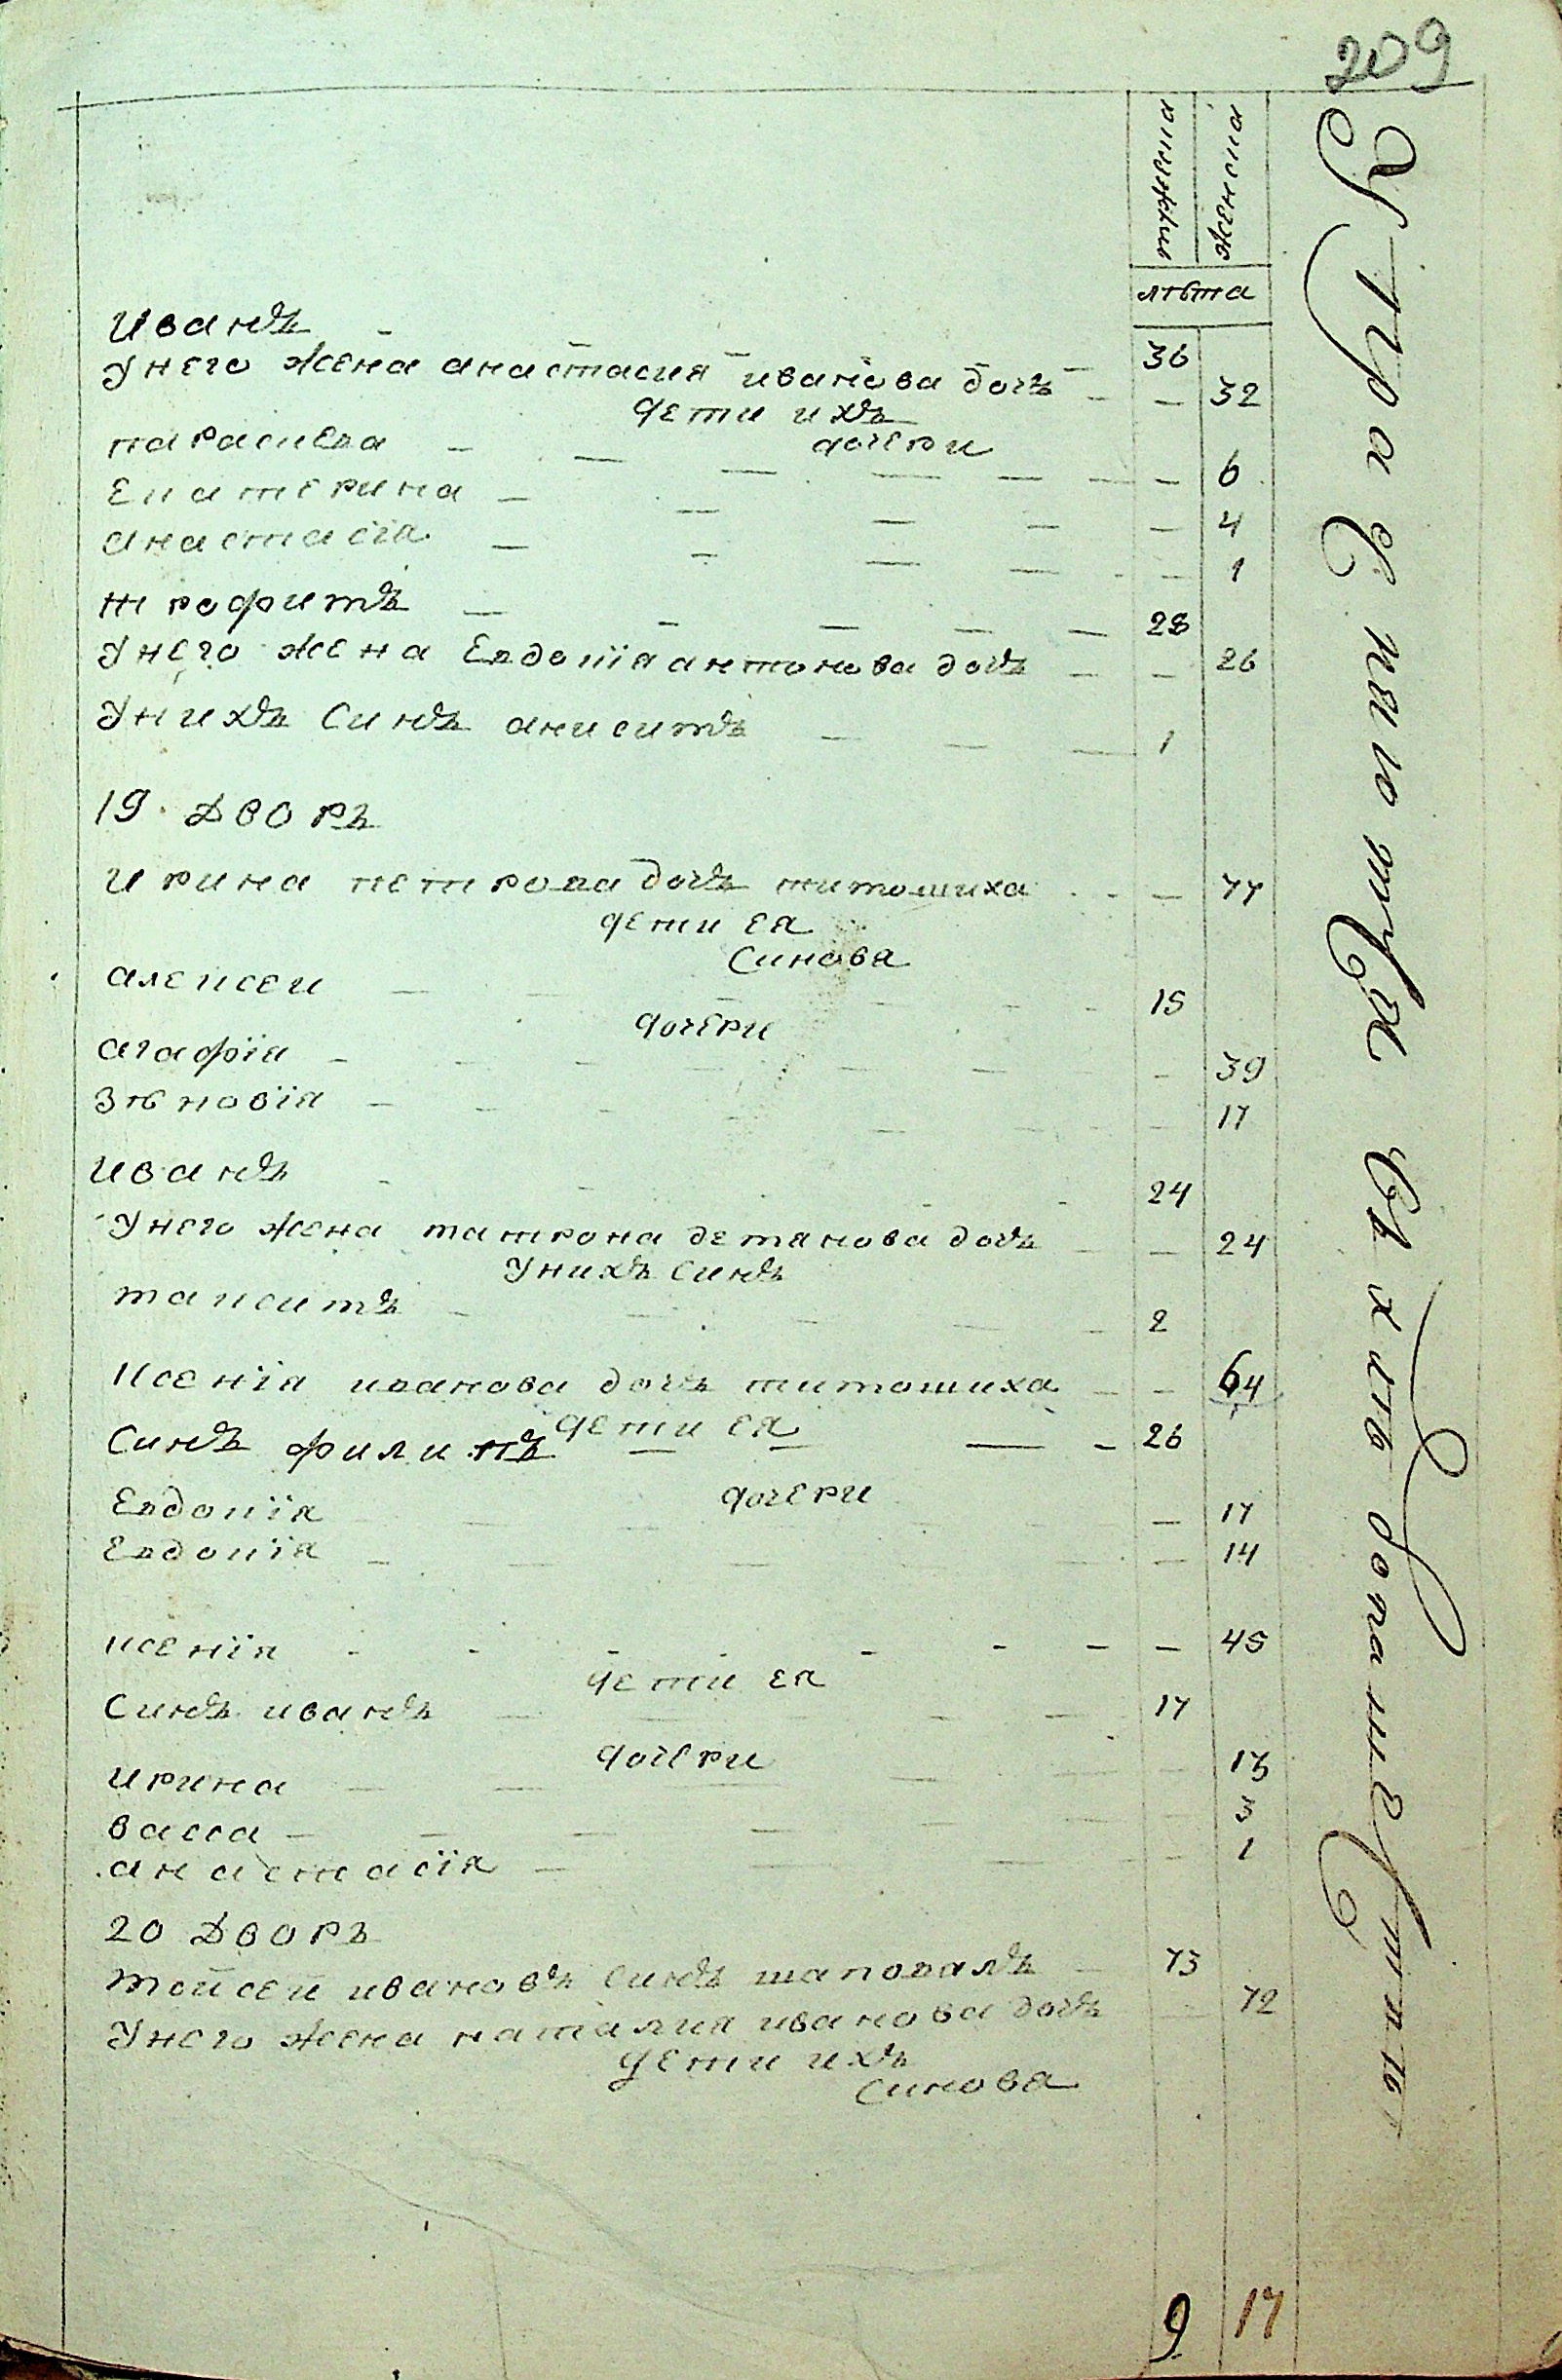 209
мужеска
женска
лѣта
Иванъ - 36
Унего жена анастасия иванова дочъ - - 32
дети ихъ
дочери
параскева - - 6
Екатерина - - 4
анастасія - - 1
трофимъ - 28
Унего жена Евдокія антонова дочъ - - 26
Унихъ Синъ анисимъ - 1
19 Дворъ
Ирина петрова дочъ титошиха - - 77
дети ея
Синова
алексеи - 15
дочери
агафія - - 39
Зѣновія - - 17
Иванъ - 24
Унего жена матрона демянова дочъ - - 24
Унихъ Синъ
максимъ - 2
Ксенія иванова дочъ титошиха - - 64
дети ея
Синъ филипъ - 26
дочери
Евдокія - - 17
Евдокія - - 14
ксенія - - 45
дети ея
Синъ иванъ - 17
дочери
ирина - - 13
васса - - 3
анастасія - - 1
20 Дворъ
мойсей ивановъ Синъ шаповалъ - 73
Унего жена наталия иванова дочъ - 72
дети ихъ
Синова
9 17